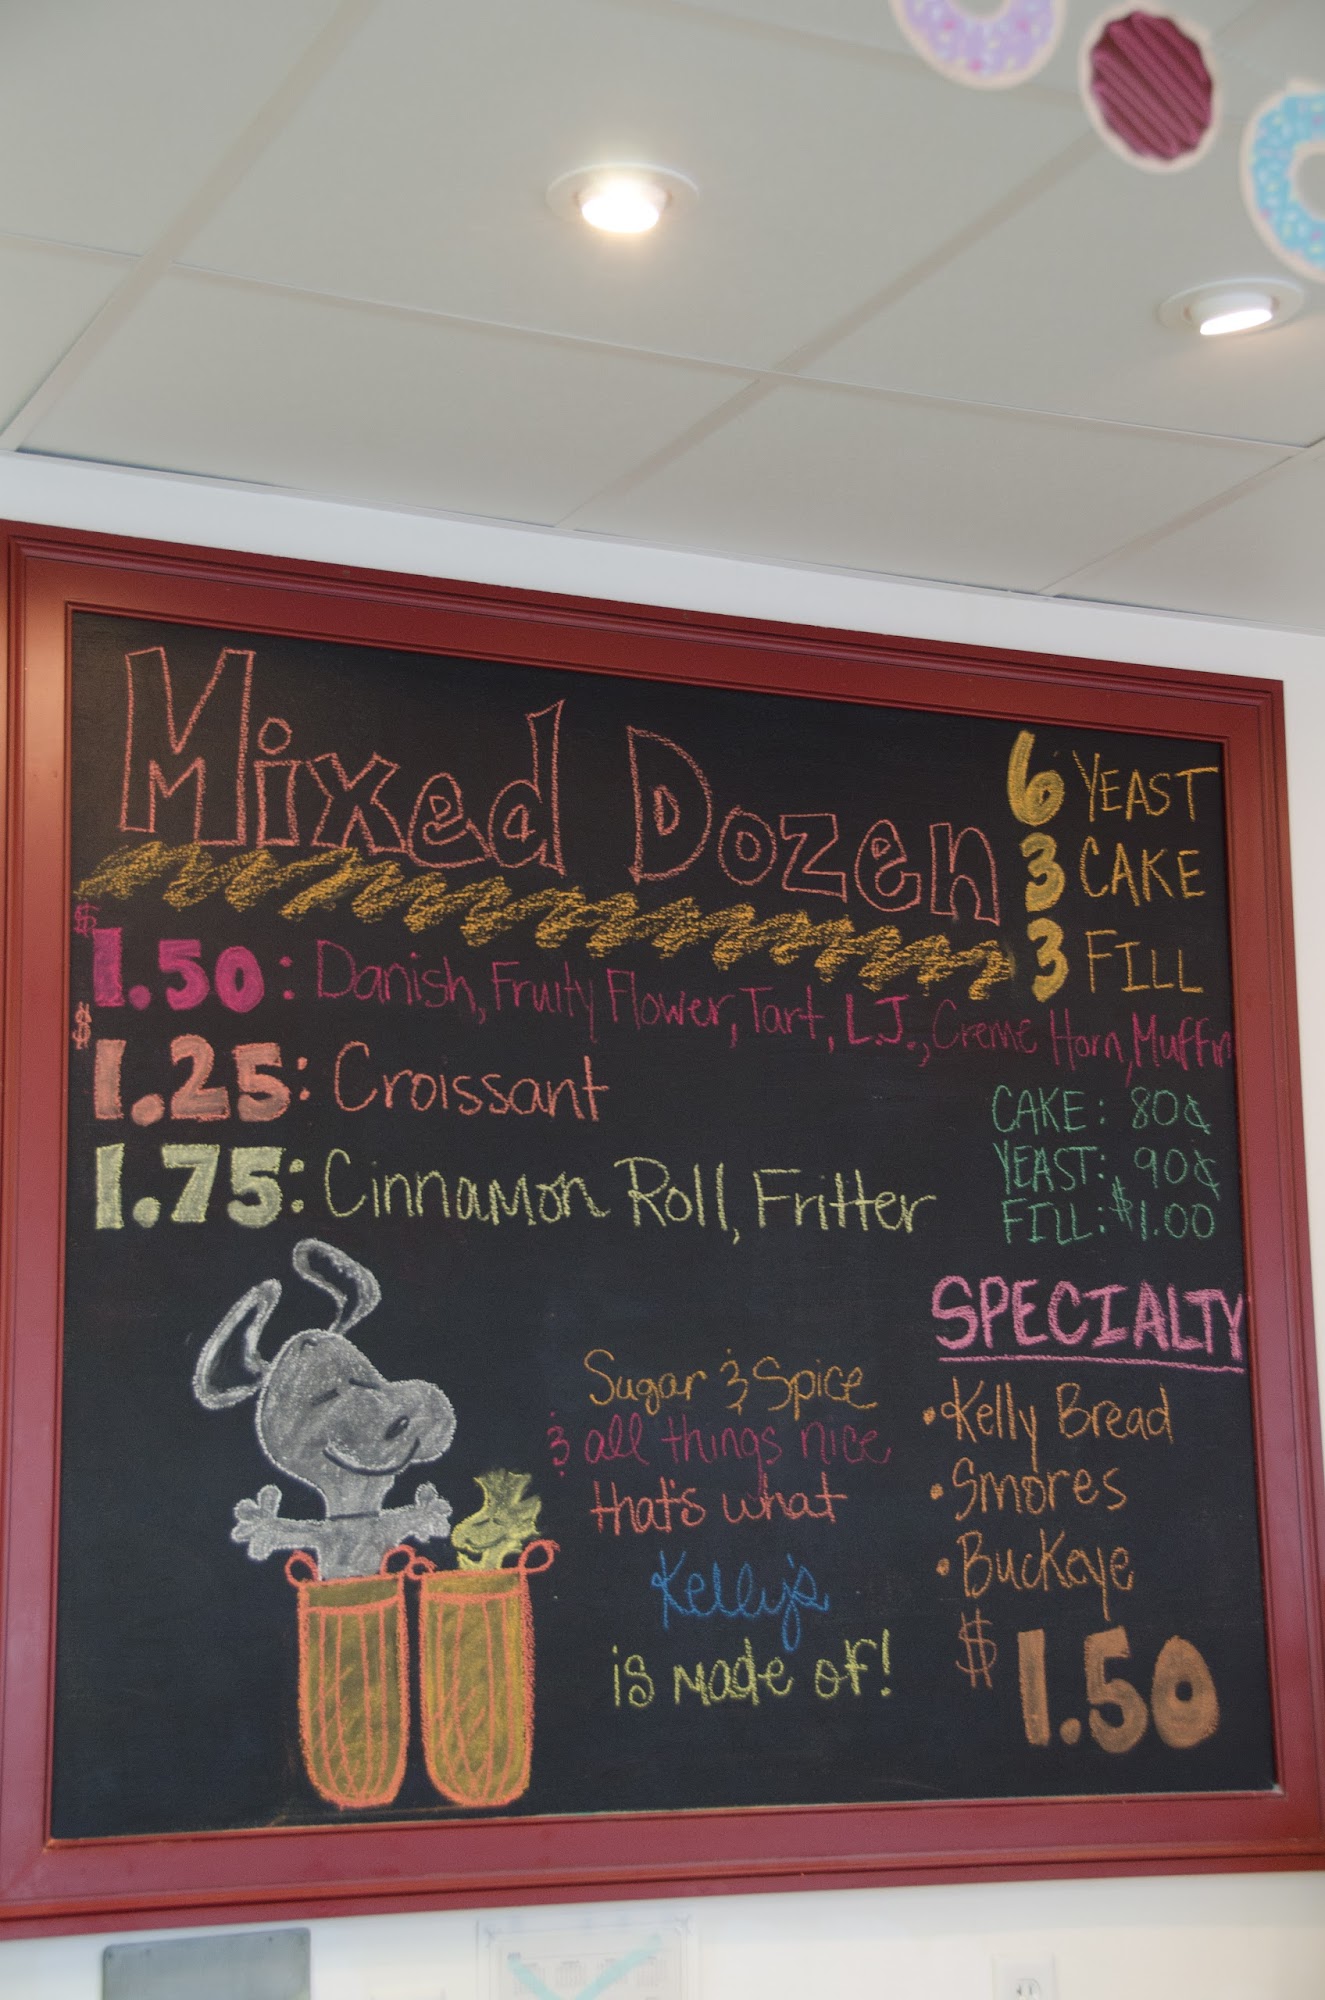 Mixed Dozen
6 YEAST
3 CAKE
3 FILL
$1.50: Danish, Fruity Flower, Tart, L.J., Creme Horn, Muffin
$1.25: Croissant
1.75: Cinnamon Roll, Fritter
CAKE: 80¢
YEAST: 90¢
FILL: $1.00
Sugar & Spice
& all things nice
that's what
Kelly's
is made of!
SPECIALTY
• Kelly Bread
• Smores
• Buckeye
$1.50